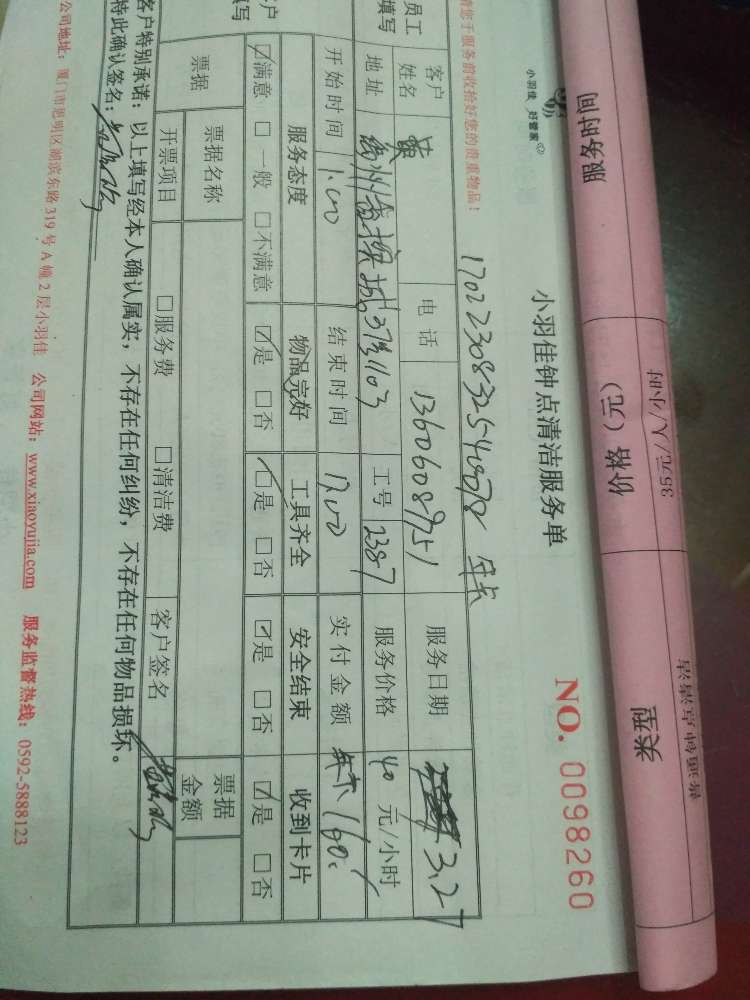 服务时间 价格（元） 类型
35元/人/小时
小羽佳 好管家
小羽佳钟点清洁服务单
NO. 0098260
请您于服务前收拾好您的贵重物品！
17022308332540078 年卡
员工填写
客户姓名 黄 电话 13606089751 服务日期 3.27
地址 37号1103 工号 2387 服务价格 40 元/小时
开始时间 1:00 结束时间 17:00 实付金额 年卡 160
服务态度 物品完好 工具齐全 安全结束 收到卡片
☑满意 □一般 □不满意 ☑是 □否 ☑是 □否 ☑是 □否 ☑是 □否
票据 票据名称 票据金额
开票项目 □服务费 □清洁费 客户签名
客户特别承诺：以上填写经本人确认属实，不存在任何纠纷，不存在任何物品损坏。
特此确认签名：
公司地址：厦门市思明区湖滨东路 319 号 A 幢 2 层小羽佳 公司网站：www.xiaoyujia.com 服务监督热线：0592-5888123